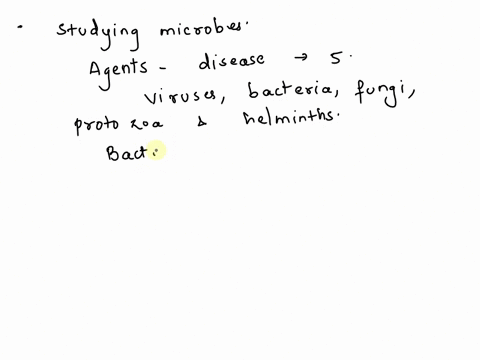 • studying microbes.
Agents - disease → 5.
viruses, bacteria, fungi,
protozoa & helminths.
Bact.